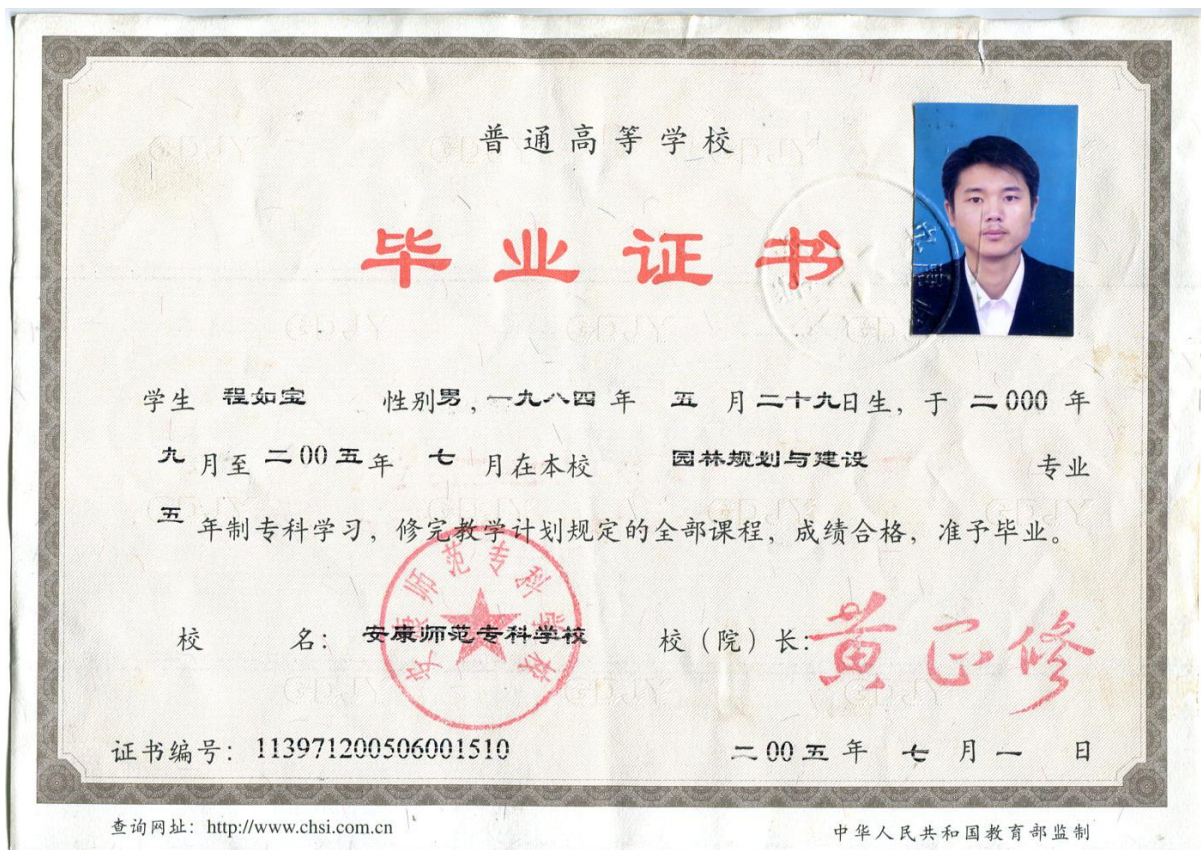 普通高等学校
毕业证书
学生 程如宝 性别男,一九八四年 五 月二十九日生, 于 二000 年
九 月至 二00五年 七 月在本校 园林规划与建设 专业
五 年制专科学习, 修完教学计划规定的全部课程, 成绩合格, 准予毕业。
安康师范专科学校
校 名: 安康师范专科学校 校(院)长: 黄正修
证书编号: 113971200506001510 二00五年 七 月 一 日
查询网址: http://www.chsi.com.cn 中华人民共和国教育部监制